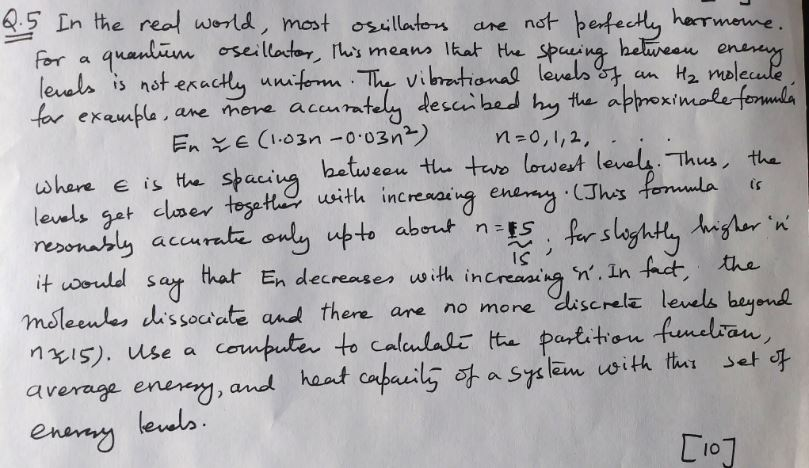 Q.5 In the real world, most oscillators are not perfectly harmonic.
For a quantum oscillator, this means that the spacing between energy
levels is not exactly uniform. The vibrational levels of an H₂ molecule,
for example, are more accurately described by the approximate formula
En ≈ ϵ (1.03n - 0.03n²) n = 0, 1, 2, . . .
where ϵ is the spacing between the two lowest levels. Thus, the
levels get closer together with increasing energy. (This formula is
resonably accurate only upto about n = 15 ; for slightly higher 'n'
15
it would say that En decreases with increasing 'n'. In fact, the
molecules dissociate and there are no more discrete levels beyond
n ≈ 15). Use a computer to calculate the partition function,
average energy, and heat capacity of a system with this set of
energy levels.
[10]